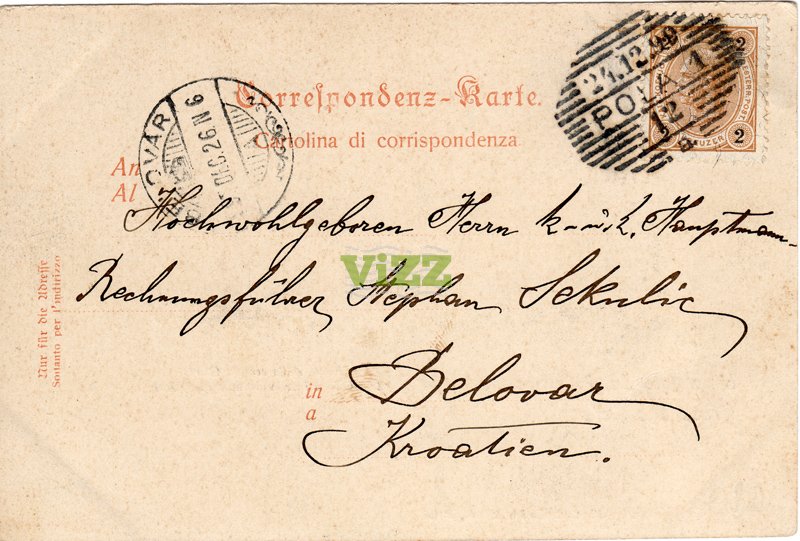 Correspondenz-Karte.
Cartolina di corrispondenza
24.12.99
POLA 1
12
2
2
ÖSTERR. POST
KREUZER
BELOVÁR
DEC. 26 N 6
An
Al
Hochwohlgeboren Herrn k-u-k. Hauptmann-
Rechnungsführer Stephan Sekulic
ViZZ
in
a
Belovar
Kroatien.
Nur für die Adresse
Soltanto per l'indirizzo